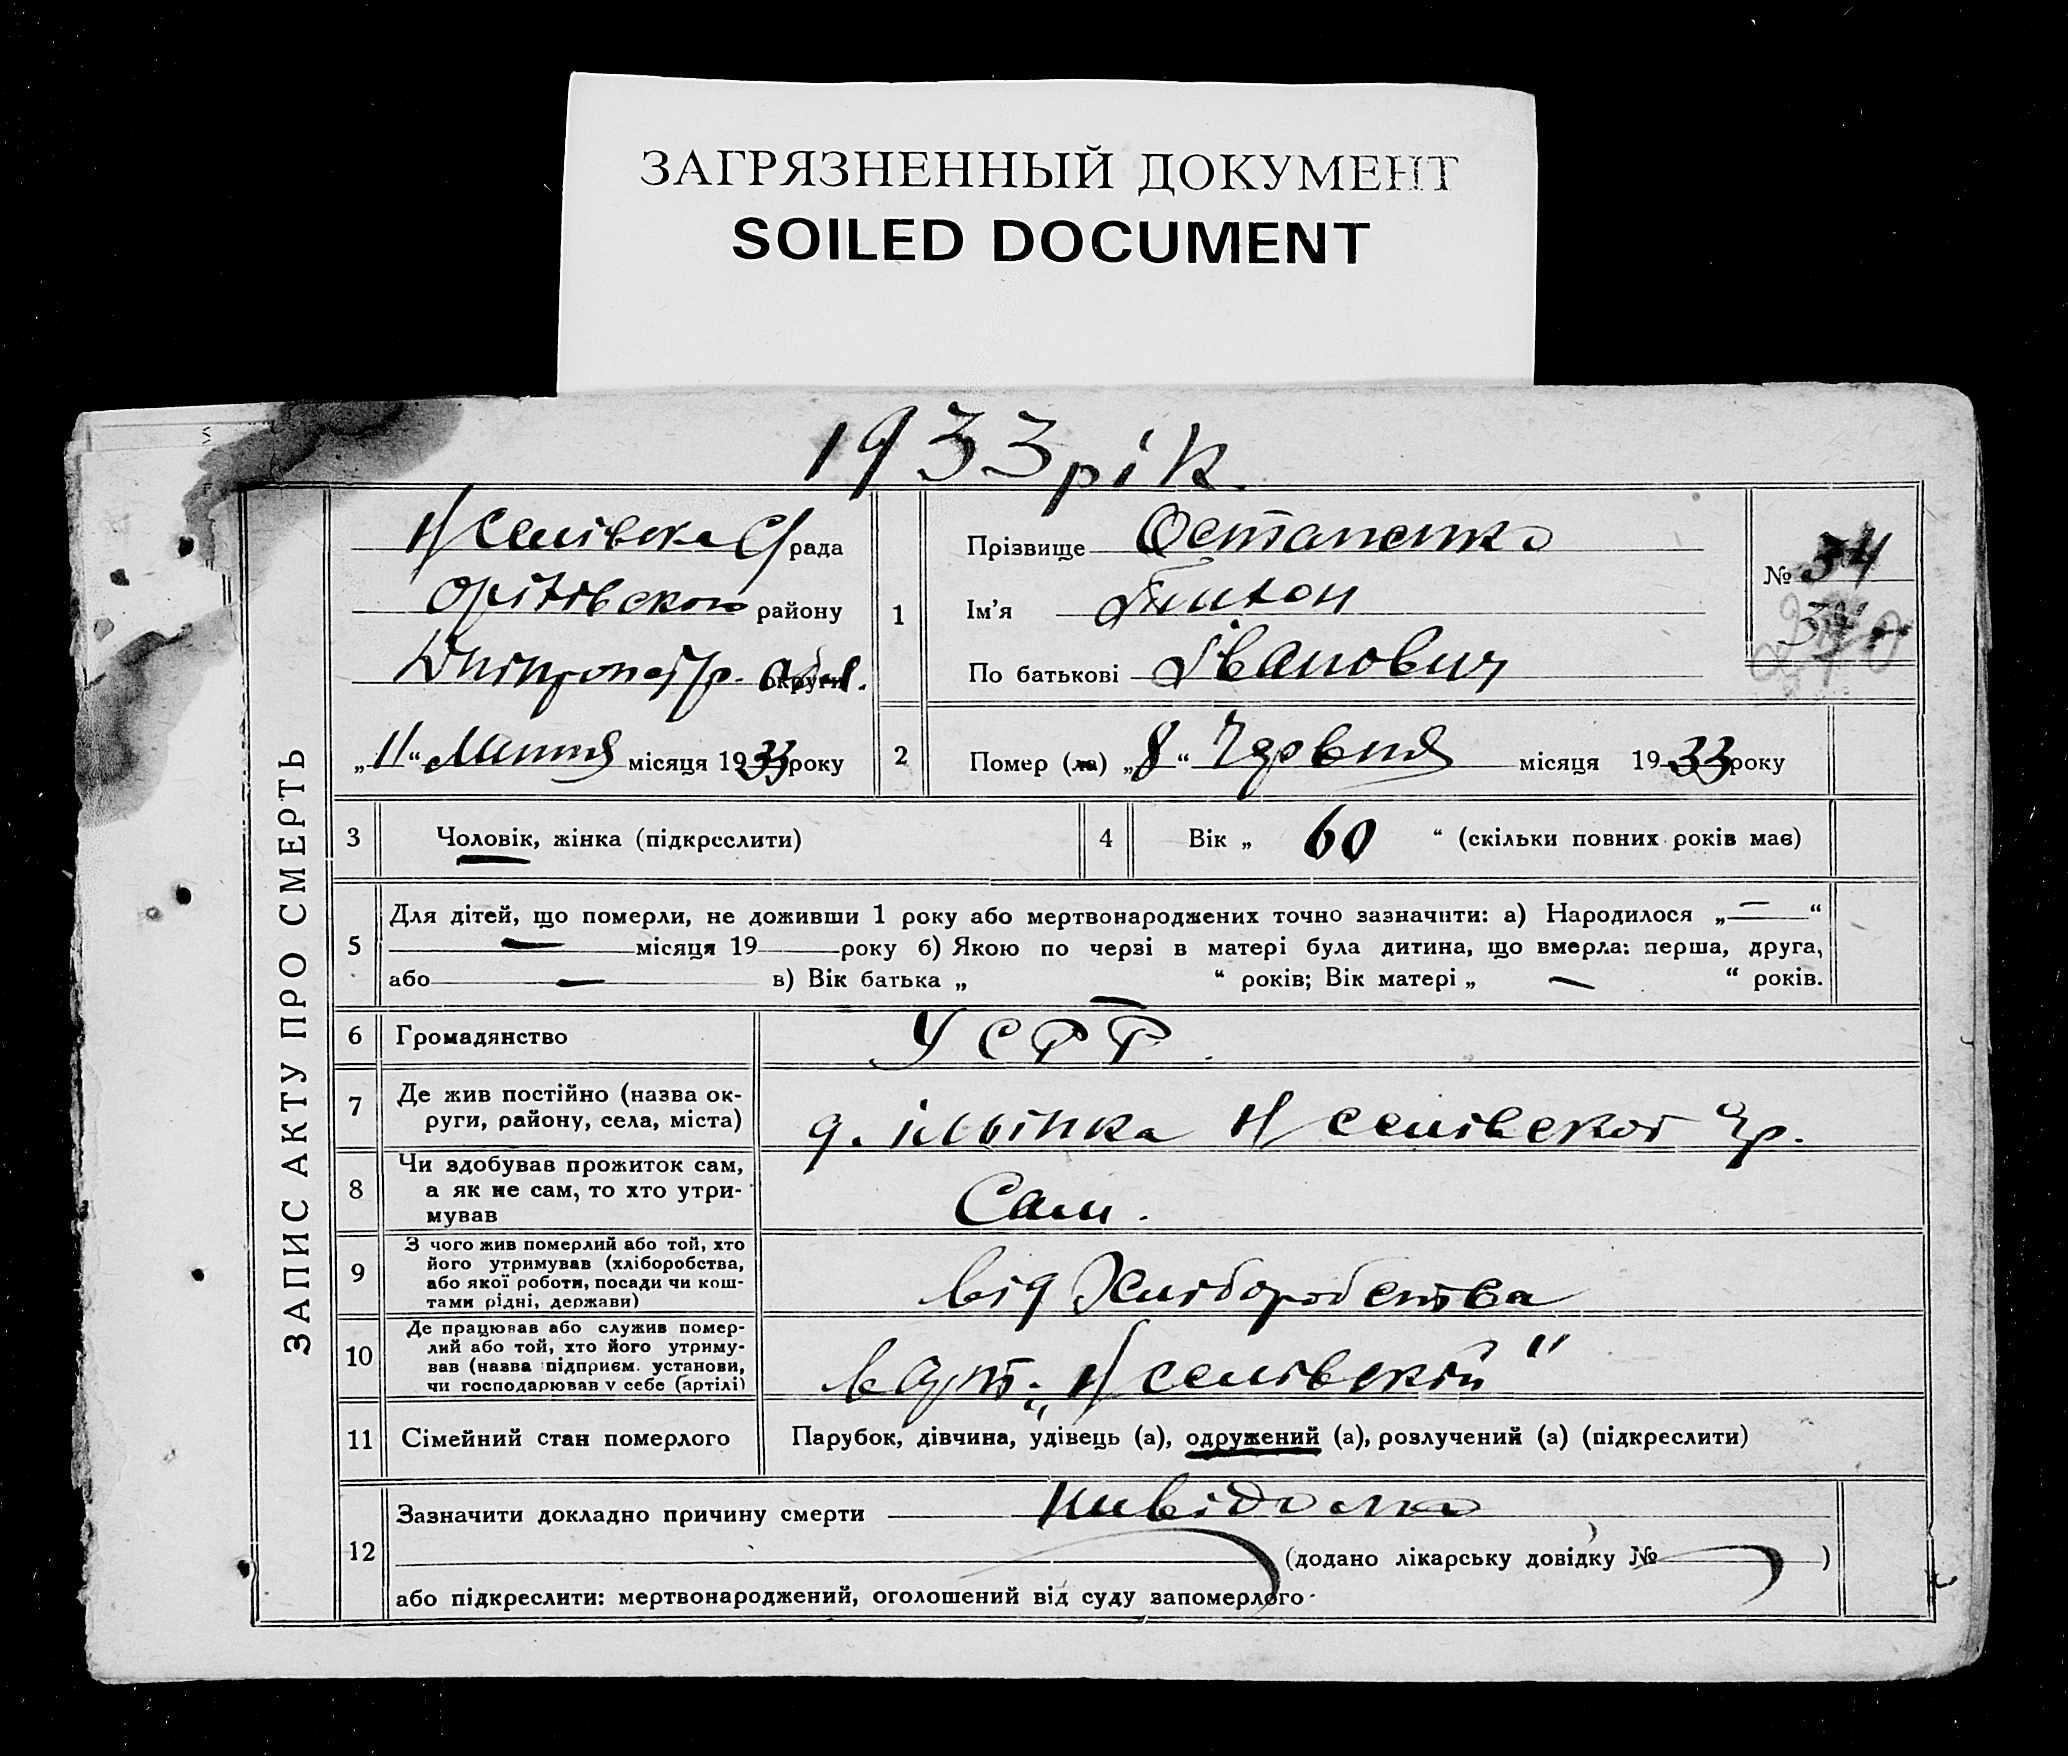 ЗАГРЯЗНЕННЫЙ ДОКУМЕНТ
SOILED DOCUMENT
1933 рік
ЗАПИС АКТУ ПРО СМЕРТЬ
Н/Селівска С/рада
району
округи
„11“ Липня місяця 1933 року
1
Прізвище Остапенко
Ім'я Тихон
По батькові Іванович
№ 34
34
2
Помер (ла) „8“ Червня місяця 1933 року
3 Чоловік, жінка (підкреслити)
4 Вік „ 60 “ (скільки повних років має)
5 Для дітей, що померли, не доживши 1 року або мертвонароджених точно зазначити: а) Народилося „—“
— місяця 19 року б) Якою по черзі в матері була дитина, що вмерла: перша, друга,
або — в) Вік батька „ — “ років; Вік матері „ — “ років.
6 Громадянство УСРР.
7 Де жив постійно (назва ок-
руги, району, села, міста)
Н/Селівскої
8 Чи здобував прожиток сам,
а як не сам, то хто утри-
мував
Сам.
9 З чого жив померлий або той, хто
його утримував (хліборобства,
або якої роботи, посади чи кош-
тами рідні, держави)
від Хліборобства
10 Де працював або служив помер-
лий або той, хто його утриму-
вав (назва підприєм. установи,
чи господарював у себе (артілі)
в арт. „Н/Селівскій"
11 Сімейний стан померлого Парубок, дівчина, удівець (а), одружений (а), розлучений (а) (підкреслити)
12 Зазначити докладно причину смерти Нивідома
(додано лікарську довідку № )
або підкреслити: мертвонароджений, оголошений від суду запомерлого